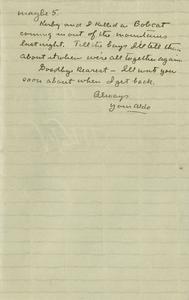 maybe 5.
Kirby and I killed a Bobcat
coming in out of the mountains
last night. Tell the boys I'll tell them
about it when we're all together again.
Goodbye Dearest – I'll write you
soon about when I get back.
Always
Your Aldo